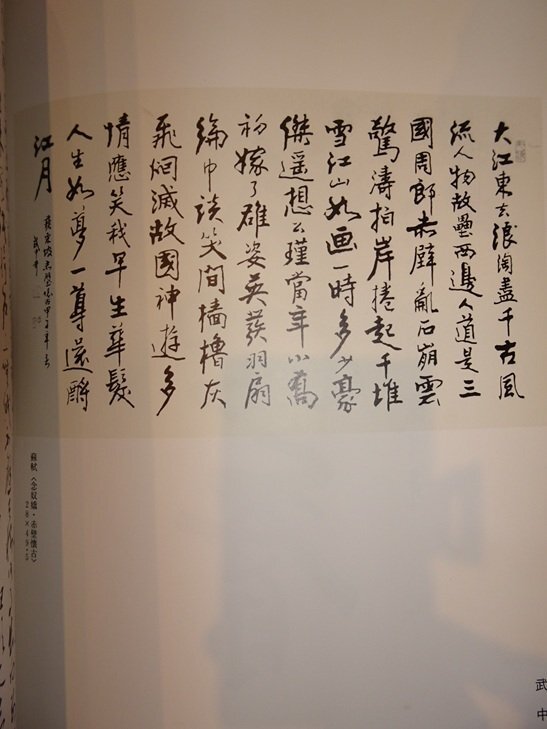 大江東去浪淘盡千古風
流人物故壘西邊人道是三
國周郎赤壁亂石崩雲
驚濤拍岸捲起千堆
雪江山如画一時多少豪
傑遥想公瑾當年小喬
初嫁了雄姿英發羽扇
綸巾談笑間檣櫓灰
飛烟滅故國神遊多
情應笑我早生華髮
人生如夢一尊還酹
江月
蘇軾《念奴嬌·赤壁懷古》
武
中